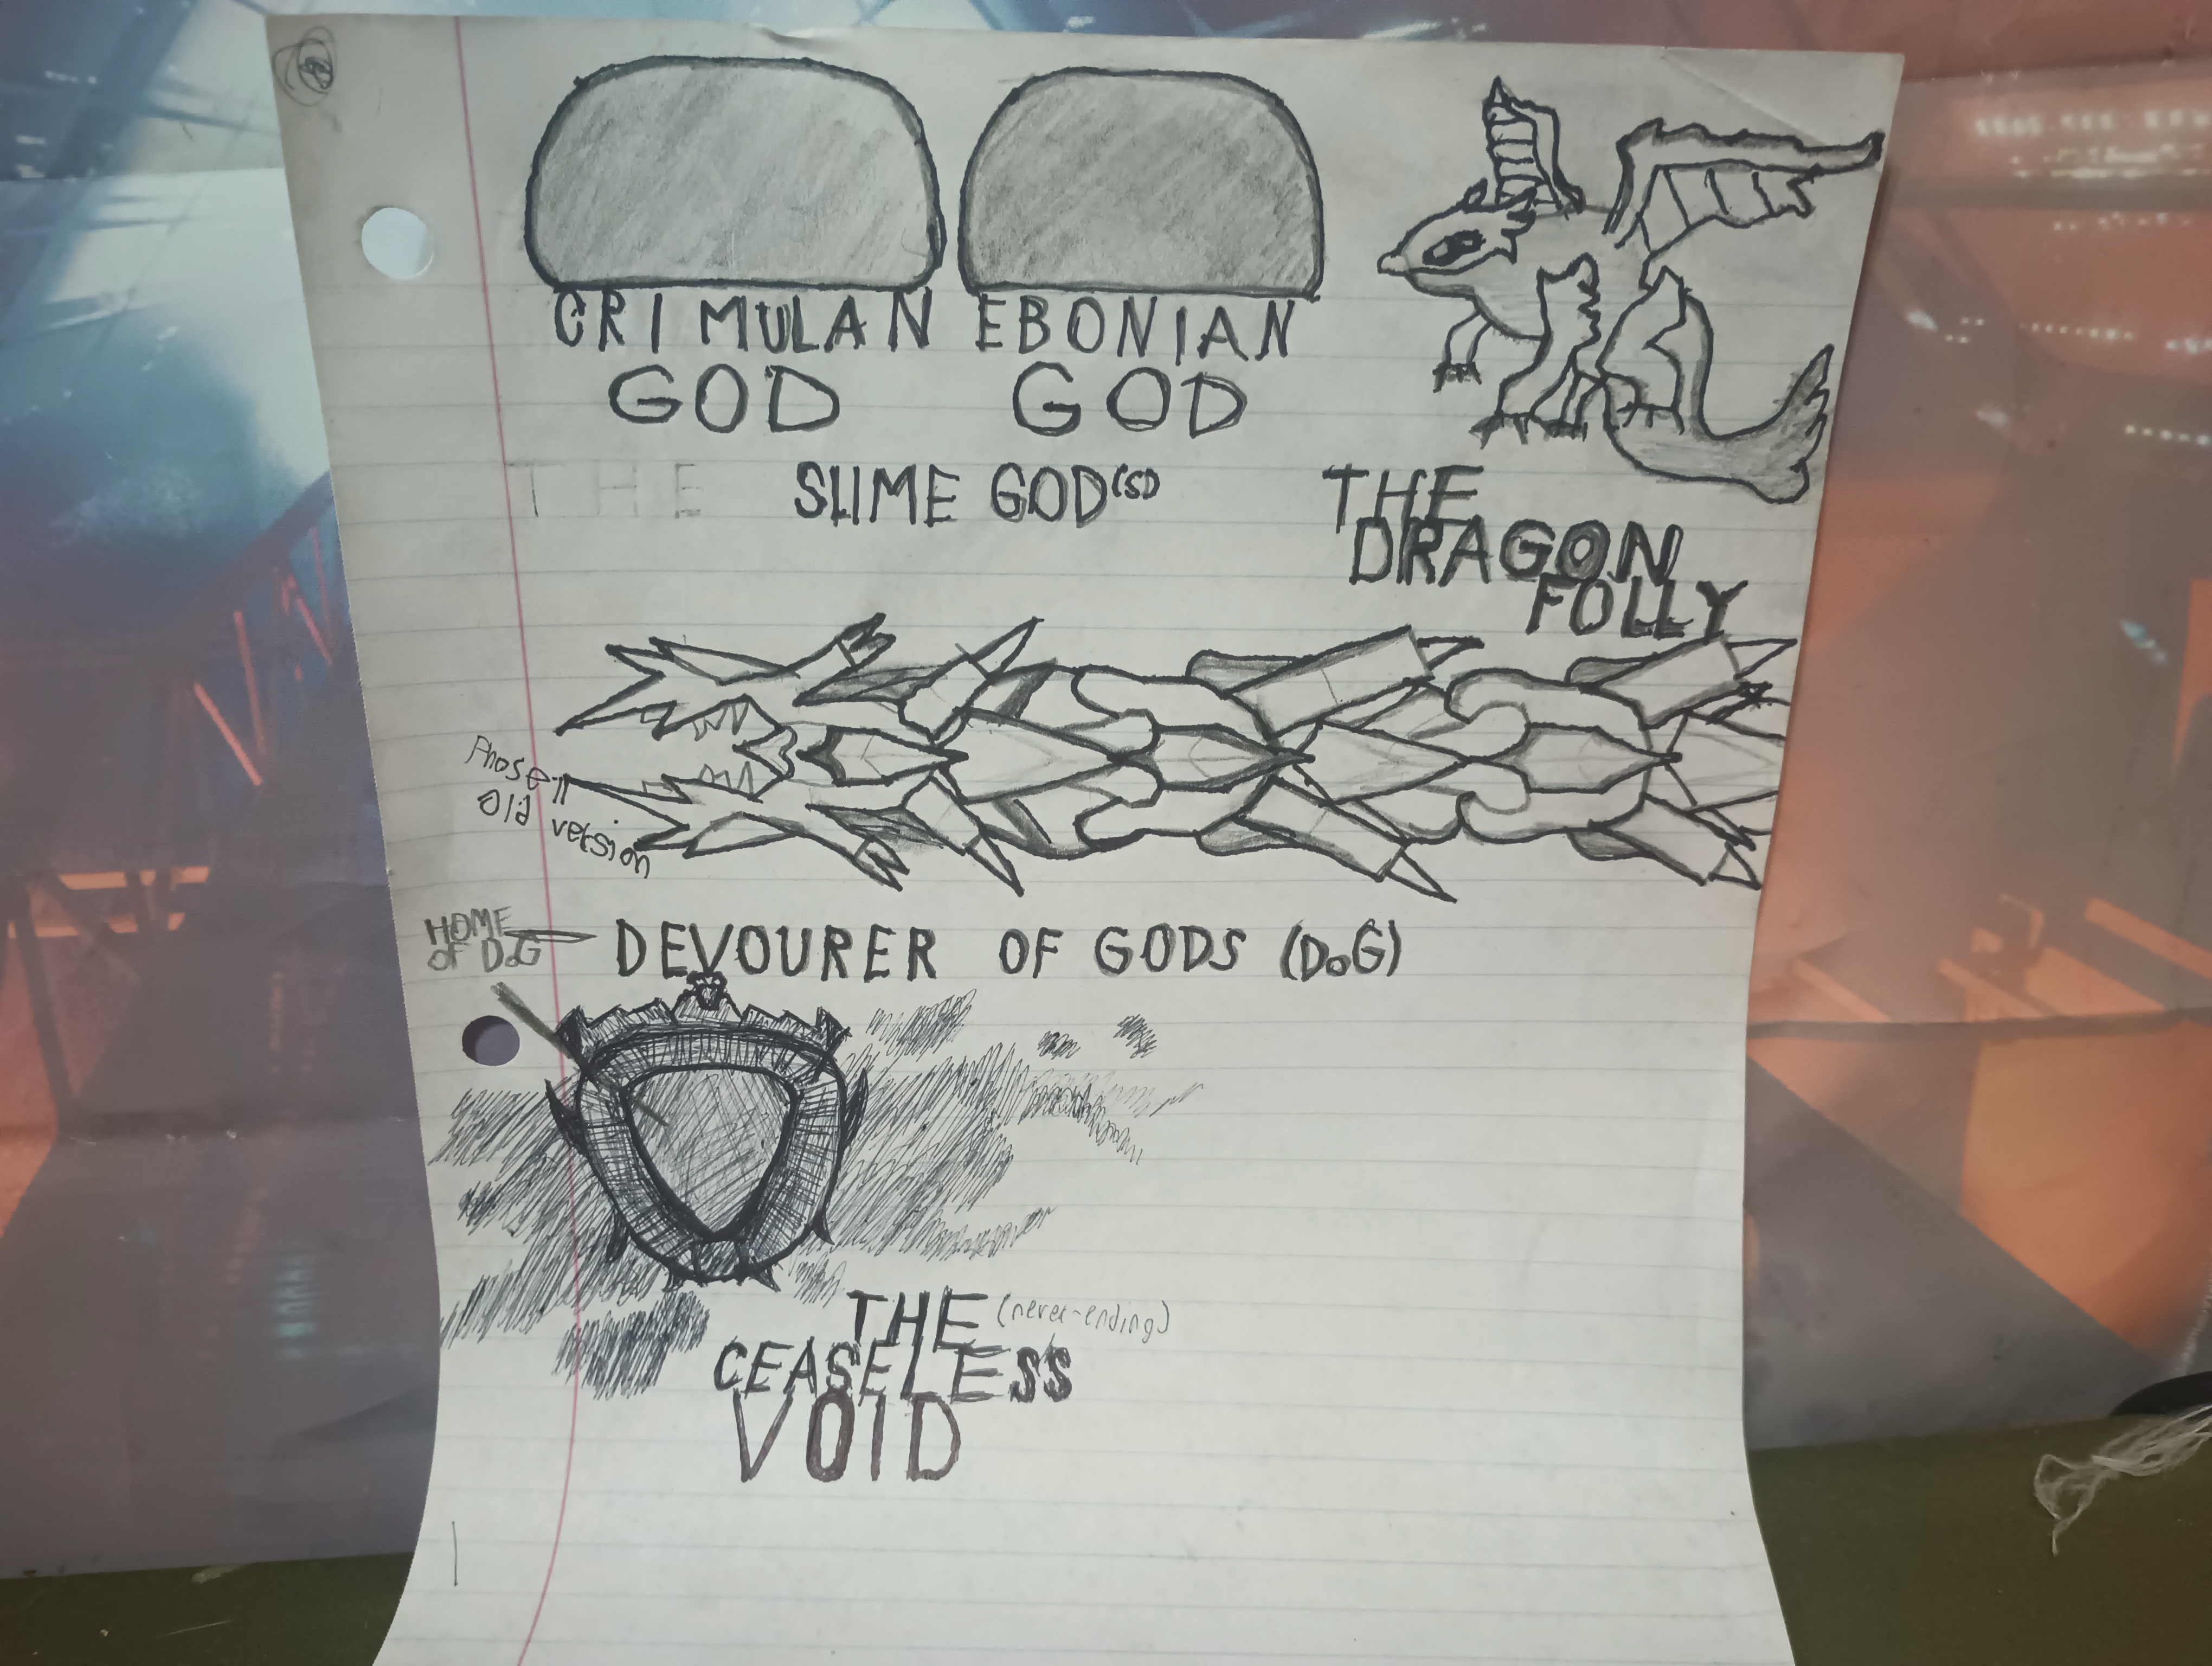 CRIMULAN
GOD
EBONIAN
GOD
THE SLIME GOD(S)
THE
DRAGON
FOLLY
Phase II
Old version
HOME
OF DoG
DEVOURER OF GODS (DoG)
THE (never-ending)
CEASELESS
VOID